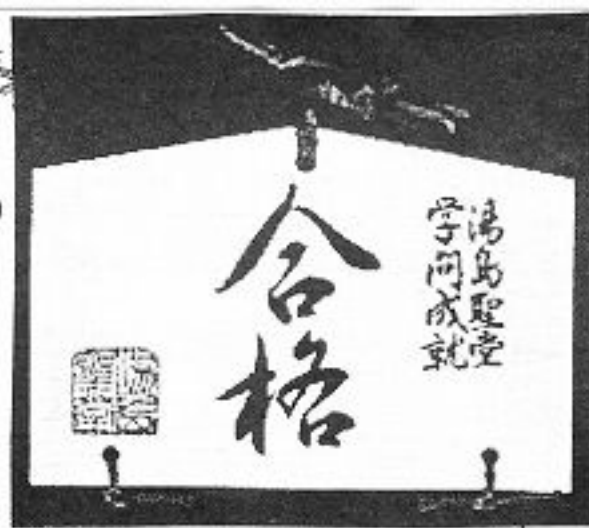 湯島聖堂
学問成就
合格